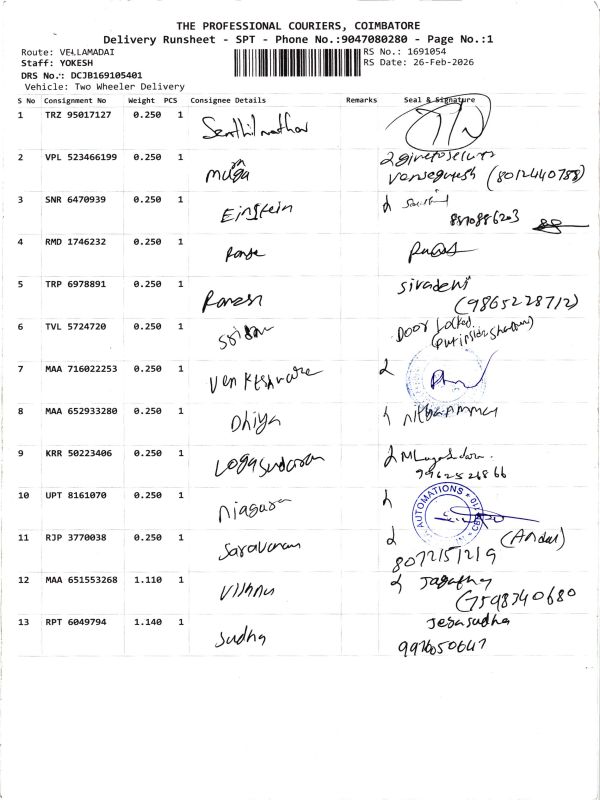 THE PROFESSIONAL COURIERS, COIMBATORE
Delivery Runsheet - SPT - Phone No.:9047080280 - Page No.:1
Route: VELLAMADAI
RS No.: 1691054
Staff: YOKESH
RS Date: 26-Feb-2026
DRS No.: DCJB169105401
Vehicle: Two Wheeler Delivery
S No Consignment No Weight PCS Consignee Details Remarks Seal & Signature
1 TRZ 95017127 0.250 1 Senthilnathan
2 VPL 523466199 0.250 1 Muga
(8012440788)
3 SNR 6470939 0.250 1 Einstein
4 RMD 1746232 0.250 1
5 TRP 6978891 0.250 1 Ramesh sivadevi
(9865228712)
6 TVL 5724720 0.250 1 Door locked
7 MAA 716022253 0.250 1
8 MAA 652933280 0.250 1 Dhiya
9 KRR 50223406 0.250 1 Logasudaran
9962526866
10 UPT 8161070 0.250 1 Niagara AUTOMATIONS
11 RJP 3770038 0.250 1 Saravanan
8072151219
12 MAA 651553268 1.110 1 Vishnu
(7598340680
13 RPT 6049794 1.140 1 Sudha Jesasudha